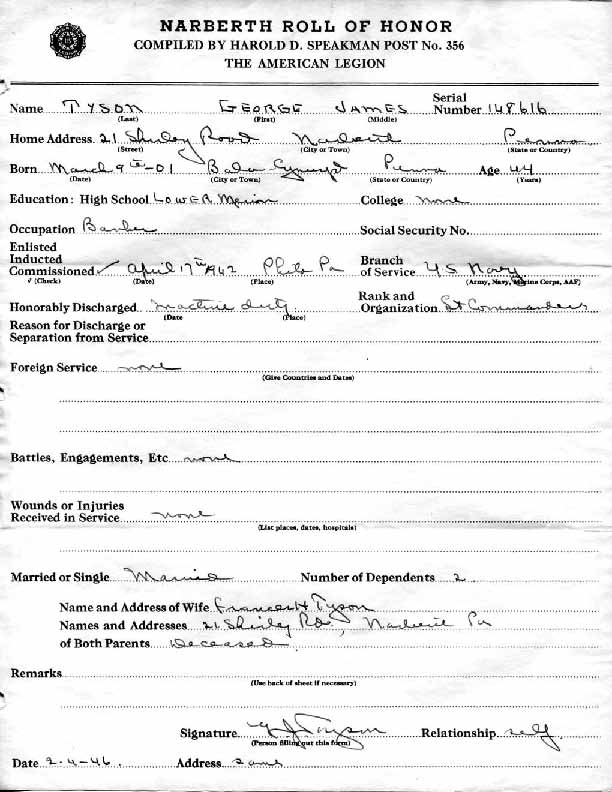 NARBERTH ROLL OF HONOR
COMPILED BY HAROLD D. SPEAKMAN POST No. 356
THE AMERICAN LEGION
Name TYSON GEORGE JAMES Serial Number 148616
(Last) (First) (Middle)
Home Address 21 Shirley Road Narberth Penna
(Street) (City or Town) (State or Country)
Born March 9th-01 Bala Cynwyd Penna Age 44
(Date) (City or Town) (State or Country) (Years)
Education: High School LOWER Merion College none
Occupation Banker Social Security No.
Enlisted
Inducted
Commissioned ✓ April 17th 1942 Phila Pa Branch of Service US Navy
√ (Check) (Date) (Place) (Army, Navy, Marine Corps, AAF)
Honorably Discharged Inactive duty Rank and Organization Lt Commander
(Date (Place)
Reason for Discharge or
Separation from Service
Foreign Service none
(Give Countries and Dates)
Battles, Engagements, Etc none
Wounds or Injuries
Received in Service none
(List places, dates, hospitals)
Married or Single Married Number of Dependents 2
Name and Address of Wife Frances H Tyson
Names and Addresses 21 Shirley Rd, Narberth Pa
of Both Parents Deceased
Remarks
(Use back of sheet if necessary)
Signature G J Tyson Relationship self
(Person filling out this form)
Date 2-4-46. Address same